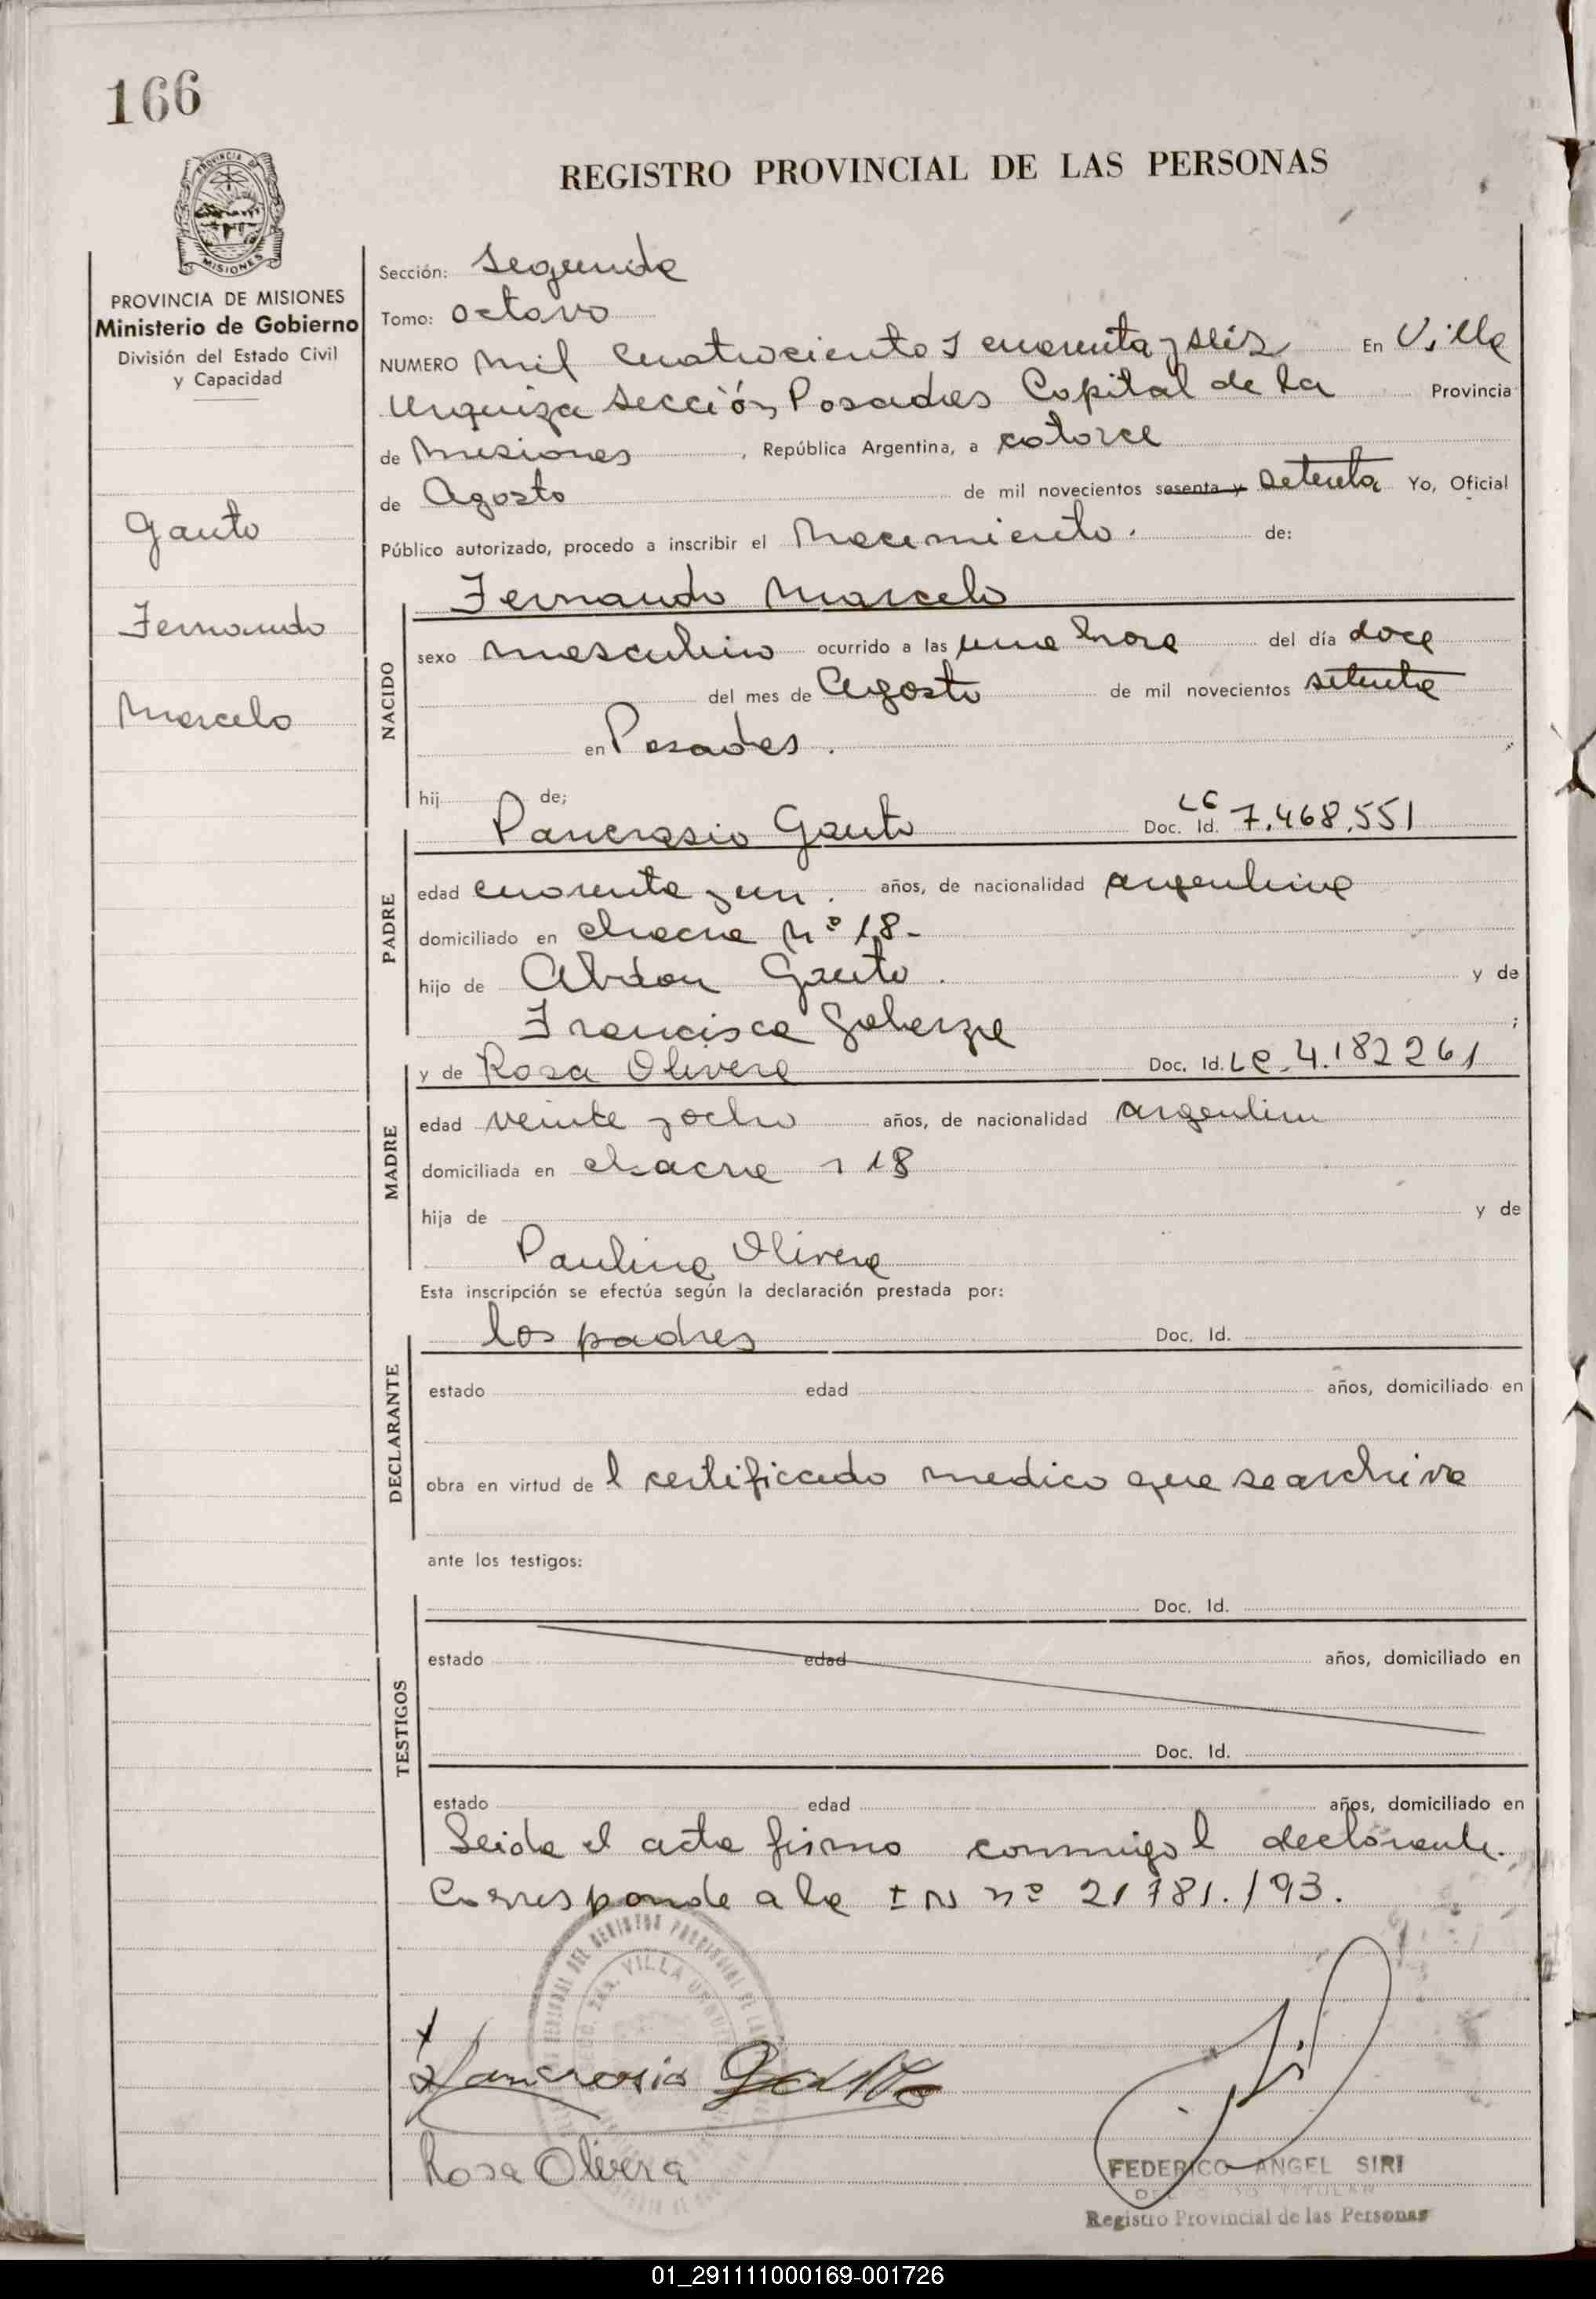 166
REGISTRO PROVINCIAL DE LAS PERSONAS
PROVINCIA DE MISIONES
Ministerio de Gobierno
División del Estado Civil
y Capacidad
Gauto
Fernando
Marcelo
Sección: Segunda
Tomo: octavo
NUMERO Mil Cuatrocientos cuarenta y seis En Villa
Urquiza Sección Posadas Capital de la Provincia
de Misiones, República Argentina, a catorce
de Agosto de mil novecientos sesenta y setenta Yo, Oficial
Público autorizado, procedo a inscribir el Nacimiento. de:
Fernando Marcelo
NACIDO
sexo masculino ocurrido a las una hora del día doce
del mes de Agosto de mil novecientos setenta
en Posadas.
hij de;
PADRE
Pancrasio Gauto Doc. Id. 7.468.551
edad cuarenta y un. años, de nacionalidad argentina
domiciliado en chacra Nº 18-
hijo de Abdon Gauto. y de
Francisca ;
MADRE
y de Rosa Olivera Doc. Id. LC. 4.182261
edad veinte y ocho años, de nacionalidad argentin
domiciliada en chacra 18
hija de y de
Paulina Olivera
Esta inscripción se efectúa según la declaración prestada por:
DECLARANTE
los padres Doc. Id.
estado edad años, domiciliado en
obra en virtud de l certificado medico que se archiva
ante los testigos:
TESTIGOS
Doc. Id.
estado edad años, domiciliado en
Doc. Id.
estado edad años, domiciliado en
Leida el acta firma conmigo l declarante.
Corresponde a la nº 21781./93.
Pancrasio Gauto
Rosa Olivera
FEDERICO ANGEL SIRI
Registro Provincial de las Personas
01_291111000169-001726